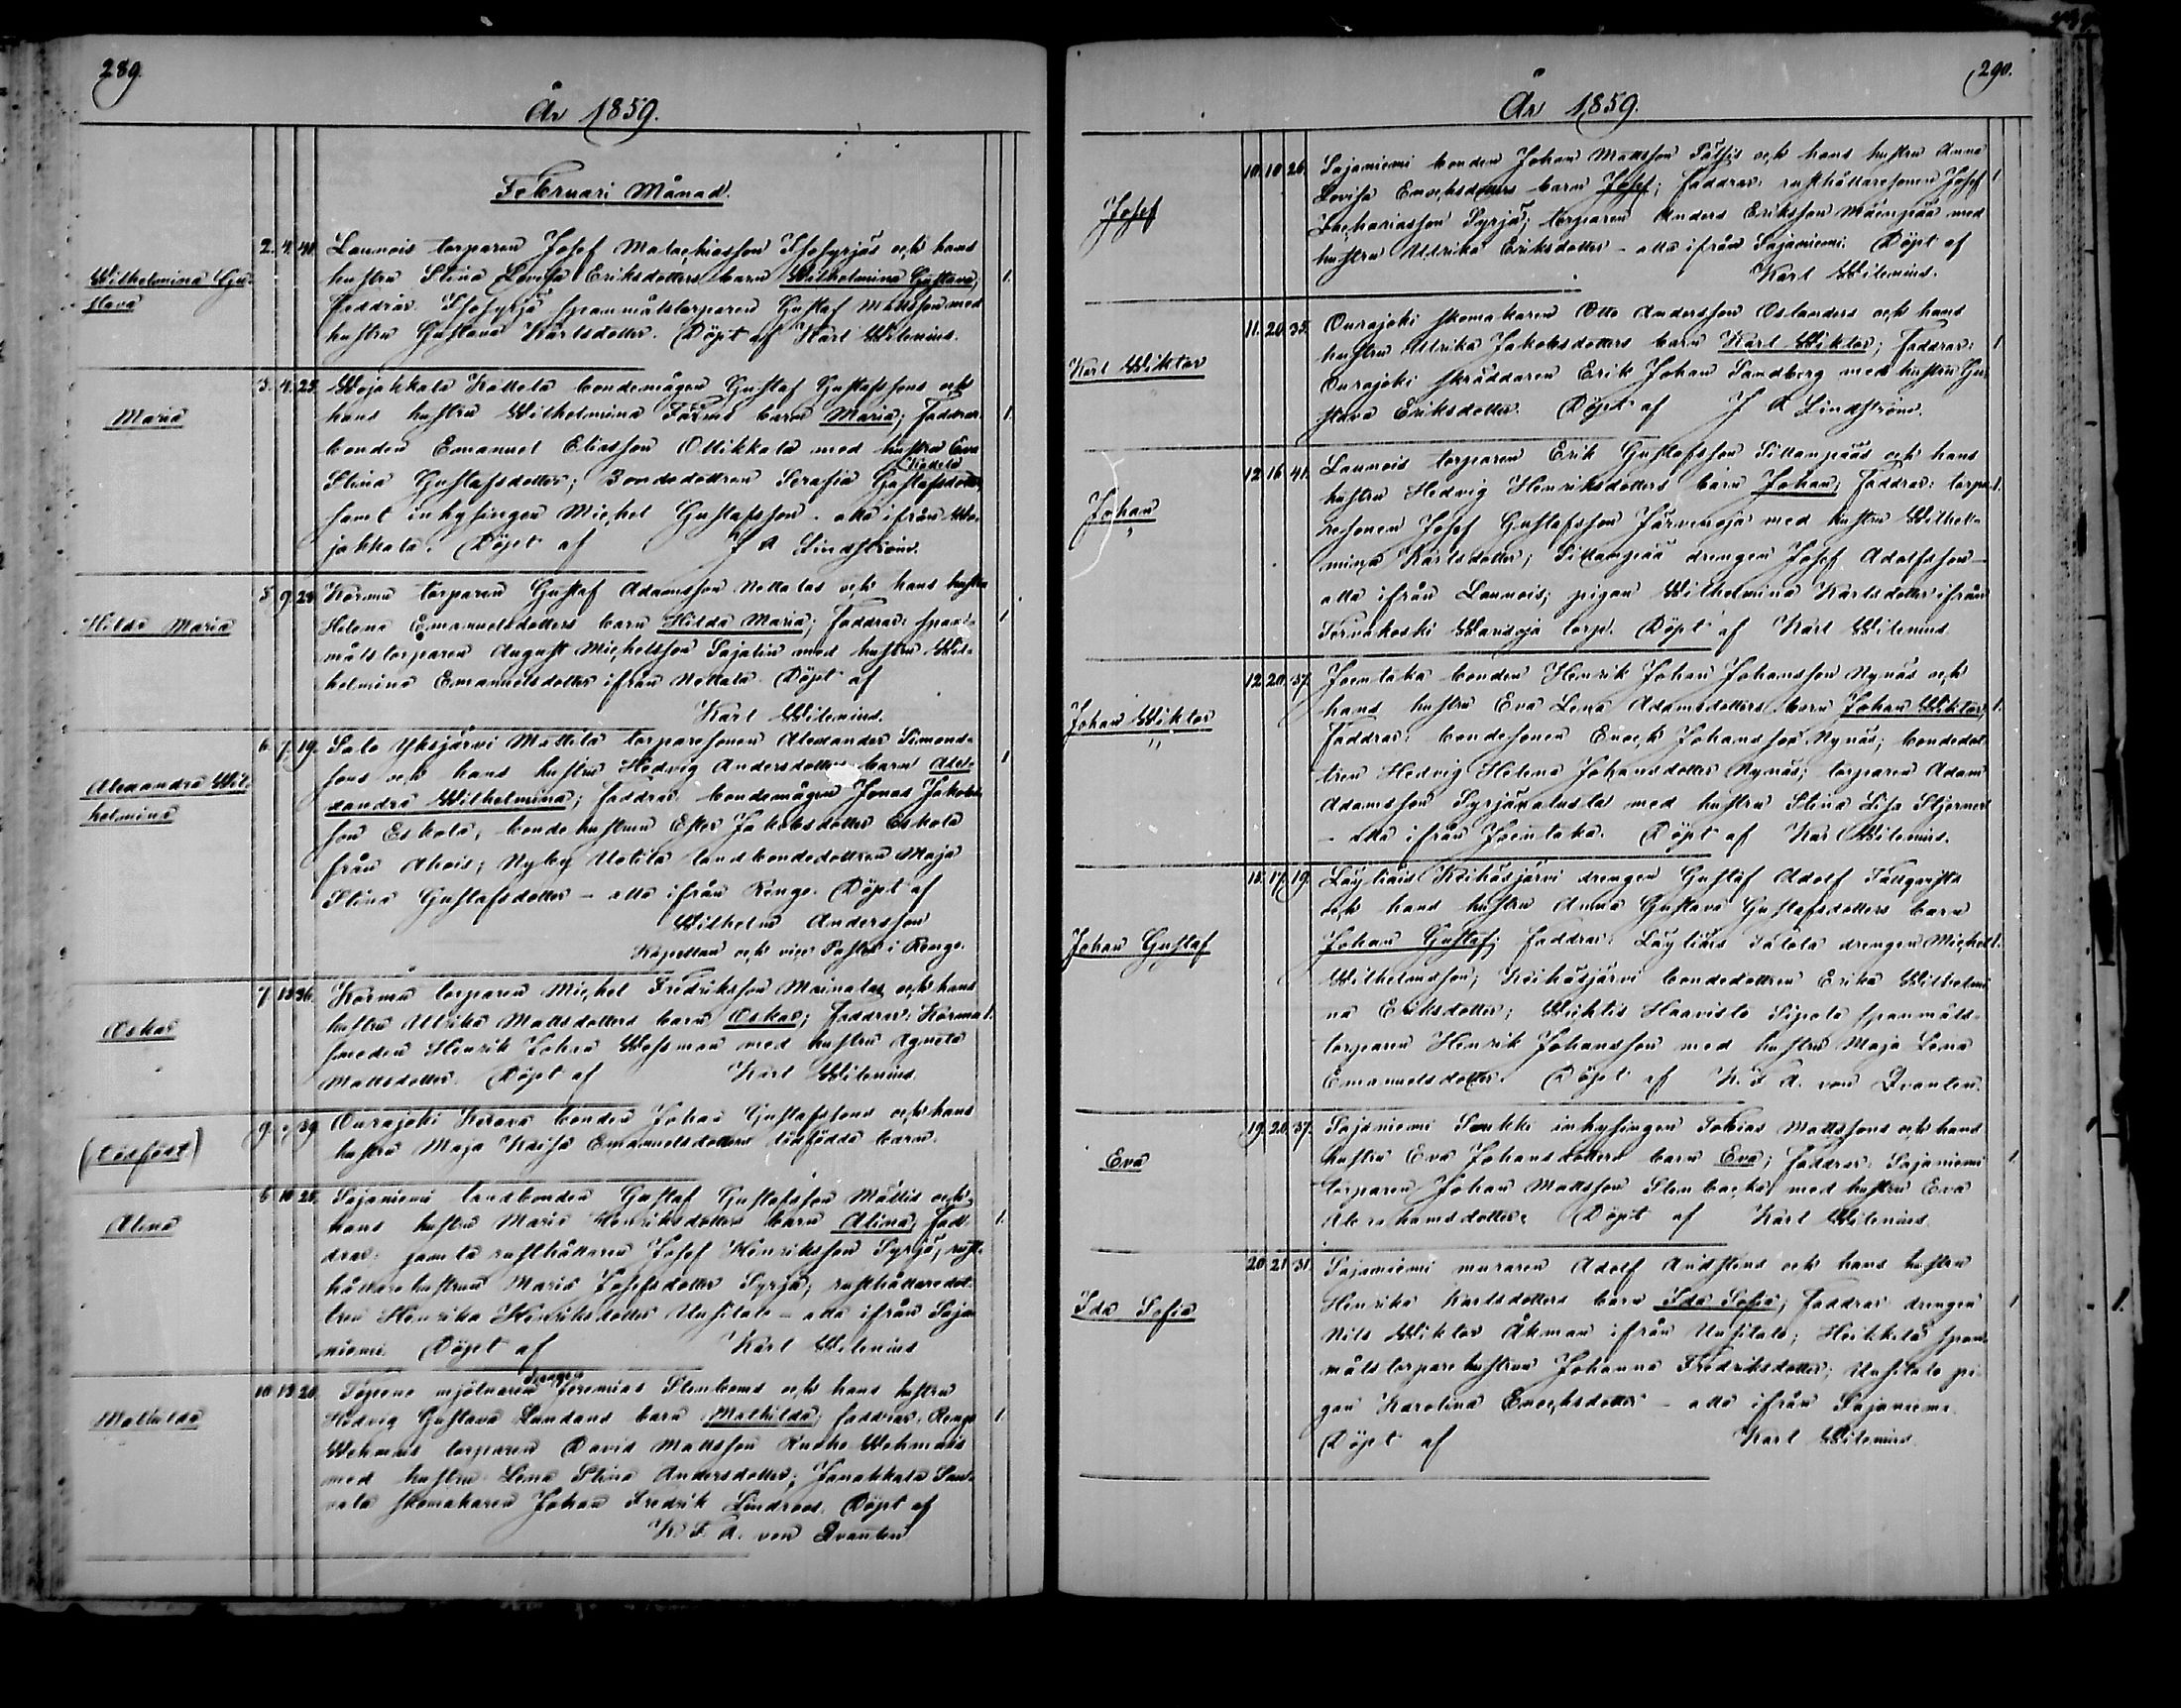 289.
År 1859.
Februari Månad.
Wilhelmina Gu-
stava
2. 4. 40. Launois torparen Josef Malachiasson Isosyrjäs och hans
hustru Stina Lovisa Eriksdotters barn Wilhelmina Gustava; 1.
Faddrar: Isosyrjä spanmålstorparen Gustaf Mattsson med
hustru Gustava Karlsdotter. Döpt af Karl Wilenius.
Maria
3. 4. 25. Wojakkala Kattela bondemågen Gustaf Gustafssons och
hans hustru Wilhelmina Färms barn Maria; Faddrar 1.
bonden Emanuel Eliasson Ollikkala med hustru Eva
Stina Gustafsdotter; Bondedottren Serafia Gustafsdotter
samt inhysingen Michel Gustafsson – alla ifrån Wo-
jakkala. Döpt af J A Lindström.
Hilda Maria
5. 9. 24. Kormu torparen Gustaf Adamsson Nottalas och hans hustru
Helena Emanuelsdotters barn Hilda Maria; Faddrar: span- 1
målstorparen August Michelsson Sajalin med hustru Wil-
helmina Emanuelsdotter ifrån Nottala. Döpt af
Karl Wilenius.
Alexandra Wil-
helmina
6. 7. 19. Salo Yksjärvi Mattila torparesonen Alexander Simons-
sons och hans hustru Hedvig Andersdotters barn Alex- 1
xandra Wilhelmina; Faddrar bondemågen Jonas Jakobs-
son Eskola, bondehustrun Ester Jakobsdotter Eskola
från Ahois; Nyby Uotila landbondedottren Maja
Stina Gustafsdotter – alla ifrån Rengo. Döpt af
Wilhelm Andersson
Kapellan och vice Pastor i Rengo.
Oskar
7. 13. 36. Kormu torparen Michel Fredriksson Mainalas och hans
hustru Ulrika Mattsdotters barn Oskar; Faddrar: Kormu 1.
smeden Henrik Johan Wessman med hustru Agneta
Mattsdotter. Döpt af Karl Wilenius.
(Dödfödt)
9. " 39. Ourajoki Kerava bonden Johan Gustafssons och hans
hustru Maja Kaisa Emanuelsdotters dödfödda barn.
Alina
6. 10. 25. Sajaniemi landbonden Gustaf Gustafsson Mattis och
hans hustru Maria Henriksdotters barn Alina; Fad- 1.
drar: gamla rusthållaren Josef Henriksson Syrjä, rust-
hållarehustrun Maria Josefsdotter Syrjä; rusthållaredot-
tren Henrika Henriksdotter Uusitalo – alla ifrån Saja-
niemi. Döpt af Karl Wilenius
Mathilda
10. 13. 20. Topeno mjölnaredrängen Jeremias Stenboms och hans hustru
Hedvig Gustava Lundans barn Mathilda; Faddrar: Rengo 1.
Wehmais torparen David Mattsson Wehmais
med hustru Lena Stina Andersdotter; Janakkala
skomakaren Johan Fredrik Lindroos. Döpt af
K. F. A. von Qvanten
290.
År 1859.
Josef
10. 10. 26. Sajaniemi bonden Johan Mattsson Pätsis och hans hustru Anna
Lovisa Enochsdotters barn Josef; Faddrar: rusthållaresonen Josef 1
Zachariasson Syrjä; torparen Anders Eriksson Mäenpää med
hustru Uldrika Eriksdotter – alla ifrån Sajaniemi. Döpt af
Karl Wilenius.
Karl Wiktor
11. 20. 35. Ourajoki skomakaren Otto Andersson Oslanders och hans
hustru Ulrika Jakobsdotters barn Karl Wiktor; Faddrar: 1
Ourajoki skräddaren Erik Johan Sandberg med hustru Gu-
stava Eriksdotter. Döpt af J A Lindström.
Johan
"
12. 16. 41. Launois torparen Erik Gustafsson Sillanpääs och hans
hustru Hedvig Henriksdotters barn Johan; Faddrar: torpa- 1.
resonen Josef Gustafsson Järvenoja med hustru Wilhel-
mina Karlsdotter; Sillanpää drengen Josef Adolfsson –
alla ifrån Launois; pigan Wilhelmina Karlsdotter ifrån
Tervakoski Warisoja torp. Döpt af Karl Wilenius.
Johan Wiktor
"
12. 20. 37. Joentaka bonden Henrik Johan Johansson Nynäs och
hans hustru Eva Lena Adamsdotters barn Johan Wiktor; 1.
Faddrar: bondesonen Enoch Johansson Nynäs; bondedot-
tren Hedvig Helena Johansdotter Nynäs; torparen Adam
Adamsson Syrjänalusta med hustru Stina Lisa Stjernert
– alla ifrån Joentaka. Döpt af Karl Wilenius.
Johan Gustaf
15. 17. 19. Läyliäis Keihäsjärvi drengen Gustaf Adolf Tallqvists
och hans hustru Anna Gustava Gustafsdotters barn
Johan Gustaf; Faddrar: Läyliäis Talola drengen Michel 1.
Wilhelmsson; Keihäsjärvi bondedottren Erika Wilhelmi-
na Eriksdotter; Wichtis Haavisto Sipola spanmåls-
torparen Henrik Johansson med hustru Maja Lena
Emanuelsdotter. Döpt af K. F. A. von Qvanten.
Eva
19. 20. 37. Sajaniemi inhysingen Tobias Mattssons och hans
hustru Eva Johansdotters barn Eva; Faddrar: Sajaniemi 1.
torparen Johan Mattsson Stenbacka med hustru Eva
Abrahamsdotter. Döpt af Karl Wilenius.
Ida Sofia
20. 21. 31. Sajaniemi muraren Adolf Lindstens och hans hustru
Henrika Karlsdotters barn Ida Sofia; Faddrar: drengen 1
Nils Wiktor Åkman ifrån Uusitalo; Heikkilä span-
målstorparehustrun Johanna Fredriksdotter; Uusitalo pi-
gan Karolina Enochsdotter – alla ifrån Sajaniemi.
Döpt af Karl Wilenius.